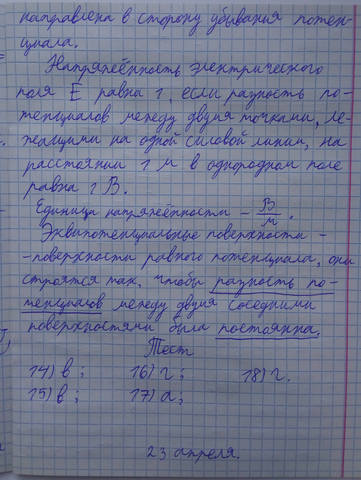 направлена в сторону убывания потен-
циала.
Напряжённость электрического
поля E равна 1, если разность по-
тенциалов между двумя точками, ле-
жащими на одной силовой линии, на
расстоянии 1 м в однородном поле
равна 1 В.
Единица напряжённости - В/м.
Эквипотенциальные поверхности -
-поверхности равного потенциала, они
строятся так, чтобы разность по-
тенциалов между двумя соседними
поверхностями была постоянна.
Тест
14) в; 16) г; 18) г.
15) в; 17) а;
23 апреля.